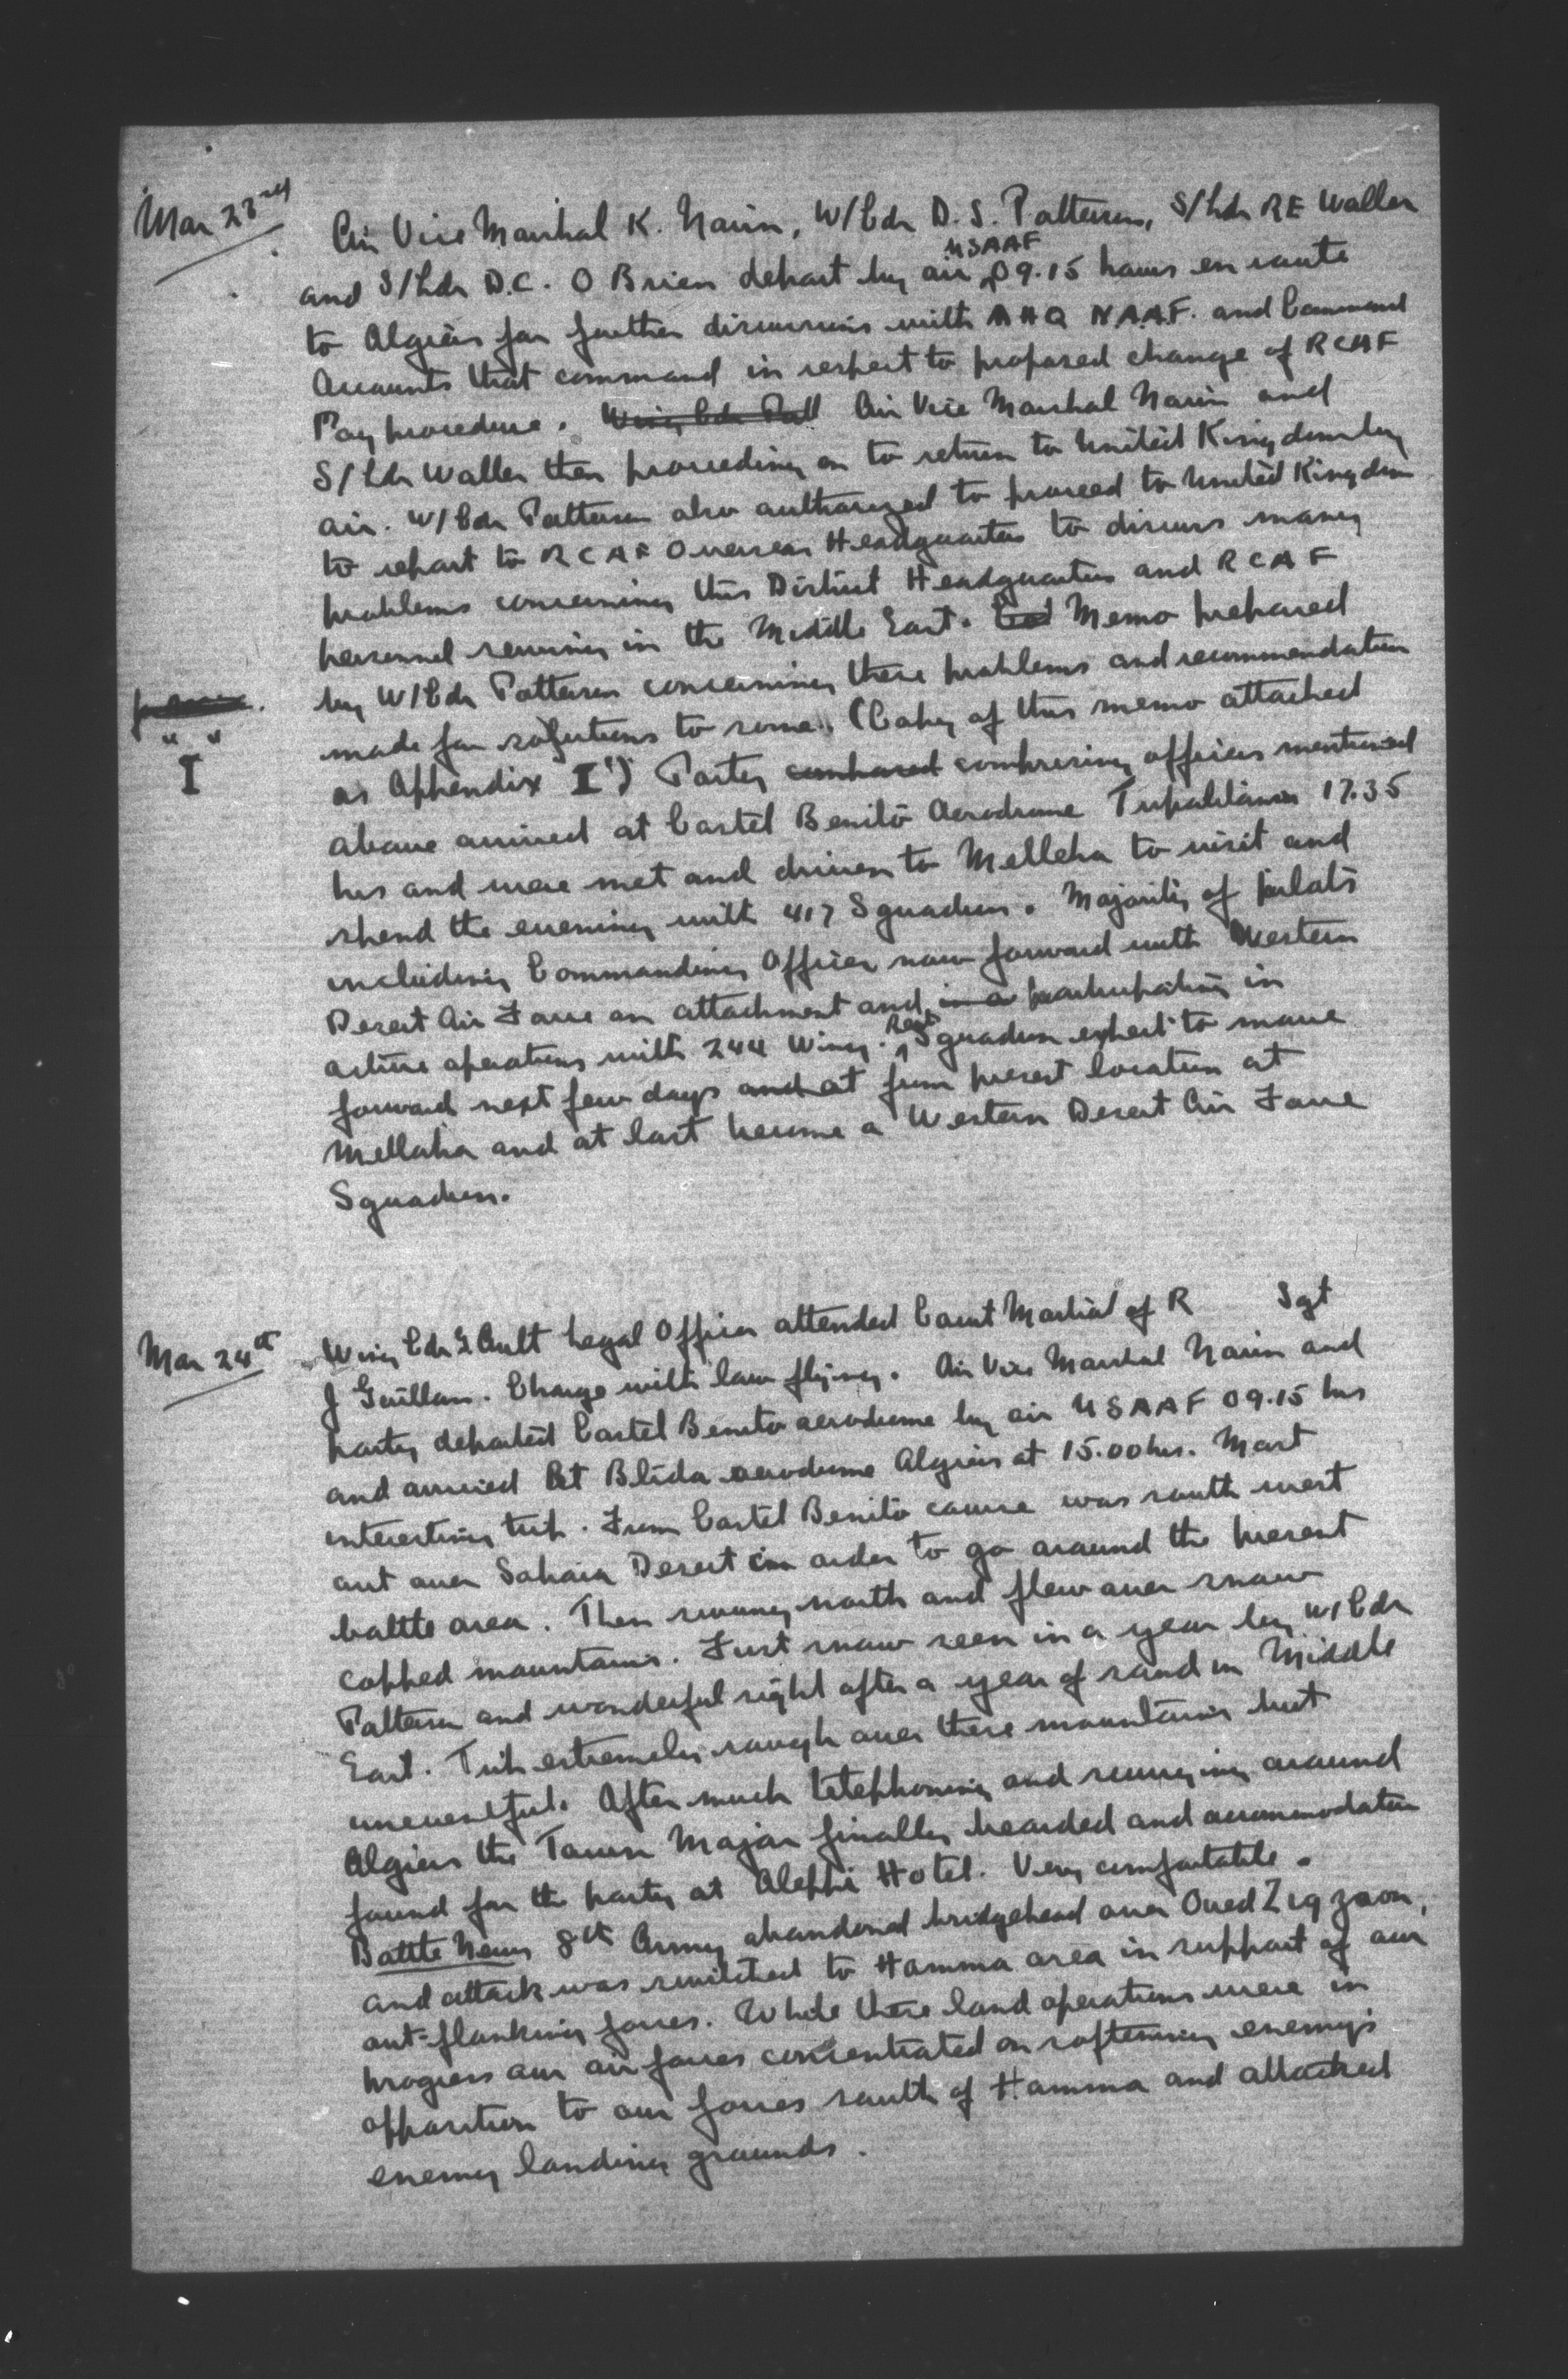 Mar 23rd
Air Vice Marshal K. Nairn, W/Cdr D. S. Patterson, S/Ldr RE Waller
USAAF
and S/Ldr D.C. O Brien depart by air 09.15 hours en route
to Algiers for further discussions with AHQ N.A.A.F. and Command
Accounts that command in respect to proposed change of RCAF
Pay procedure. Wing Cdr Patt Air Vice Marshal Nairn and
S/Ldr Waller then proceeding on to return to United Kingdom by
air. W/Cdr Patterson also authorized to proceed to United Kingdom
to report to RCAF Overseas Headquarters to discuss many
problems concerning this District Headquarters and RCAF
personnel serving in the Middle East. Memo prepared
by W/Cdr Patterson concerning these problems and recommendation
made for solutions to same. (Copy of this memo attached
" "
I
as Appendix "I") Party comprising officers mentioned
above arrived at Castel Benito Aerodrome Tripolitania 17.35
hrs and were met and driven to Melleha to visit and
spend the evening with 417 Squadron. Majority of pilots
including Commanding Officer now forward with Western
Desert Air Force on attachment and in a participating in
active operations with 244 Wing. Rest Squadron expect to move
forward next few days and at from present location at
Mellaha and at last become a Western Desert Air Force
Squadron.
Mar 24th
Wing Cdr G Ault Legal Officer attended Court Martial of R Sgt
J Guillan. Charge with low flying. Air Vice Marshal Nairn and
party departed Castel Benito aerodrome by air USAAF 09.15 hrs
and arrived At Blida aerodrome Algiers at 15.00 hrs. Most
interesting trip. From Castel Benito course was south west
out over Sahara Desert in order to go around the present
battle area. Then swung north and flew over snow
capped mountains. First snow seen in a year by W/Cdr
Patterson and wonderful sight after a year of sand in Middle
East. Trip extremely rough over these mountains but
uneventful. After much telephoning and scurrying around
Algiers the Town Major finally bearded and accommodation
found for the party at Aletti Hotel. Very comfortable.
Battle News 8th Army abandoned bridgehead over Oued Zigzaon,
and attack was switched to Hamma area in support of our
out-flanking forces. While these land operations were in
progress our air forces concentrated on softening enemy's
opposition to our forces south of Hamma and attacked
enemy landing grounds.